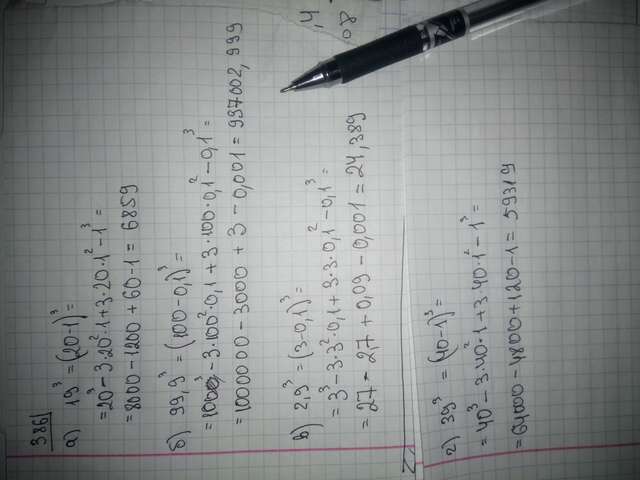 386
а) 19³ = (20-1)³ =
= 20³ - 3·20²·1 + 3·20·1² - 1³ =
= 8000 - 1200 + 60 - 1 = 6859
б) 99,9³ = (100 - 0,1)³ =
= 100³ - 3·100²·0,1 + 3·100·0,1² - 0,1³ =
= 1000000 - 3000 + 3 - 0,001 = 997002,999
в) 2,9³ = (3 - 0,1)³ =
= 3³ - 3·3²·0,1 + 3·3·0,1² - 0,1³ =
= 27 - 2,7 + 0,09 - 0,001 = 24,389
г) 39³ = (40-1)³ =
= 40³ - 3·40²·1 + 3·40·1² - 1³ =
= 64000 - 4800 + 120 - 1 = 59319
,4
08